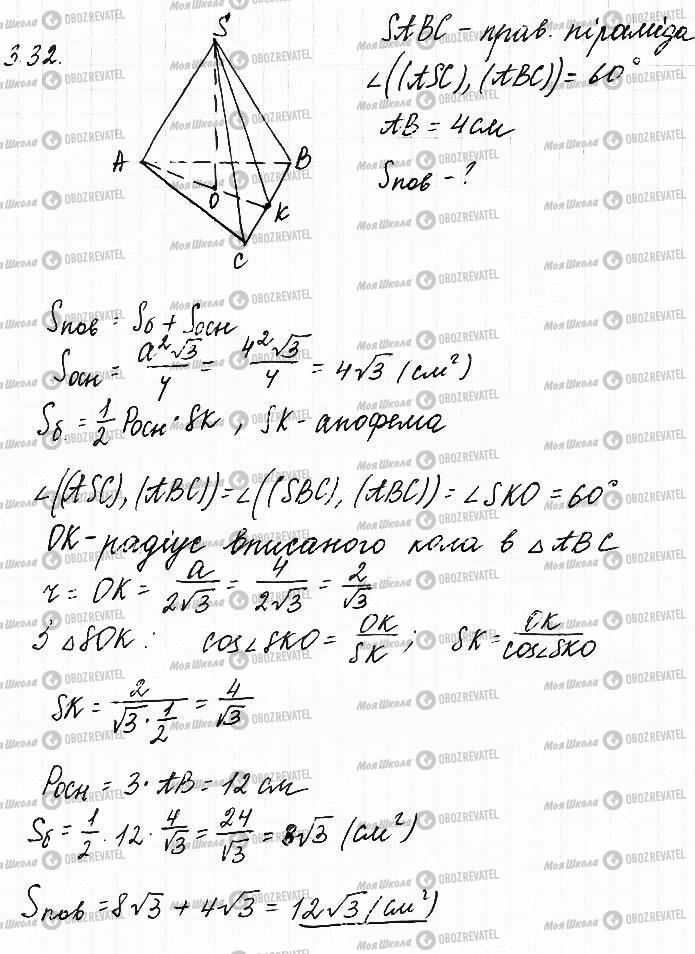 3.32.
SABC - прав. піраміда
∠((ASC), (ABC)) = 60°
AB = 4 см
Sпов - ?
S
A
B
O
K
C
Sпов = Sб + Sосн
Sосн = a²√3/4 = 4²√3/4 = 4√3 (см²)
Sб = 1/2 Pосн · SK, SK - апофема
∠((ASC), (ABC)) = ∠((SBC), (ABC)) = ∠SKO = 60°
OK - радіус вписаного кола в △ABC
r = OK = a/2√3 = 4/2√3 = 2/√3
З △SOK: cos∠SKO = OK/SK; SK = OK/cos∠SKO
SK = 2/√3·1/2 = 4/√3
Pосн = 3 · AB = 12 см
Sб = 1/2 · 12 · 4/√3 = 24/√3 = 8√3 (см²)
Sпов = 8√3 + 4√3 = 12√3 (см²)
МояШкола OBOZREVATEL